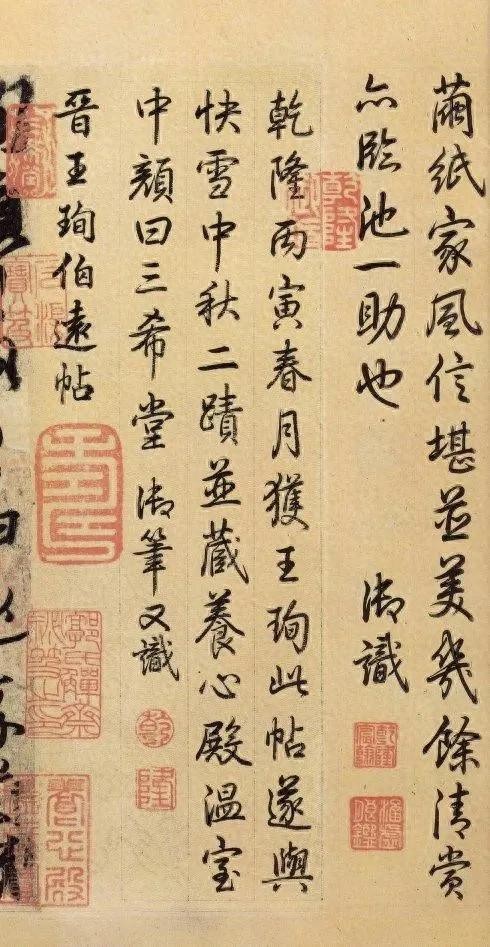 繭紙家風信堪並美幾餘清賞
亦臨池一助也 御識
乾隆丙寅春月獲王珣此帖遂與
快雪中秋二蹟並藏養心殿溫室
中顔曰三希堂 御筆又識
乾
隆
晉王珣伯遠帖